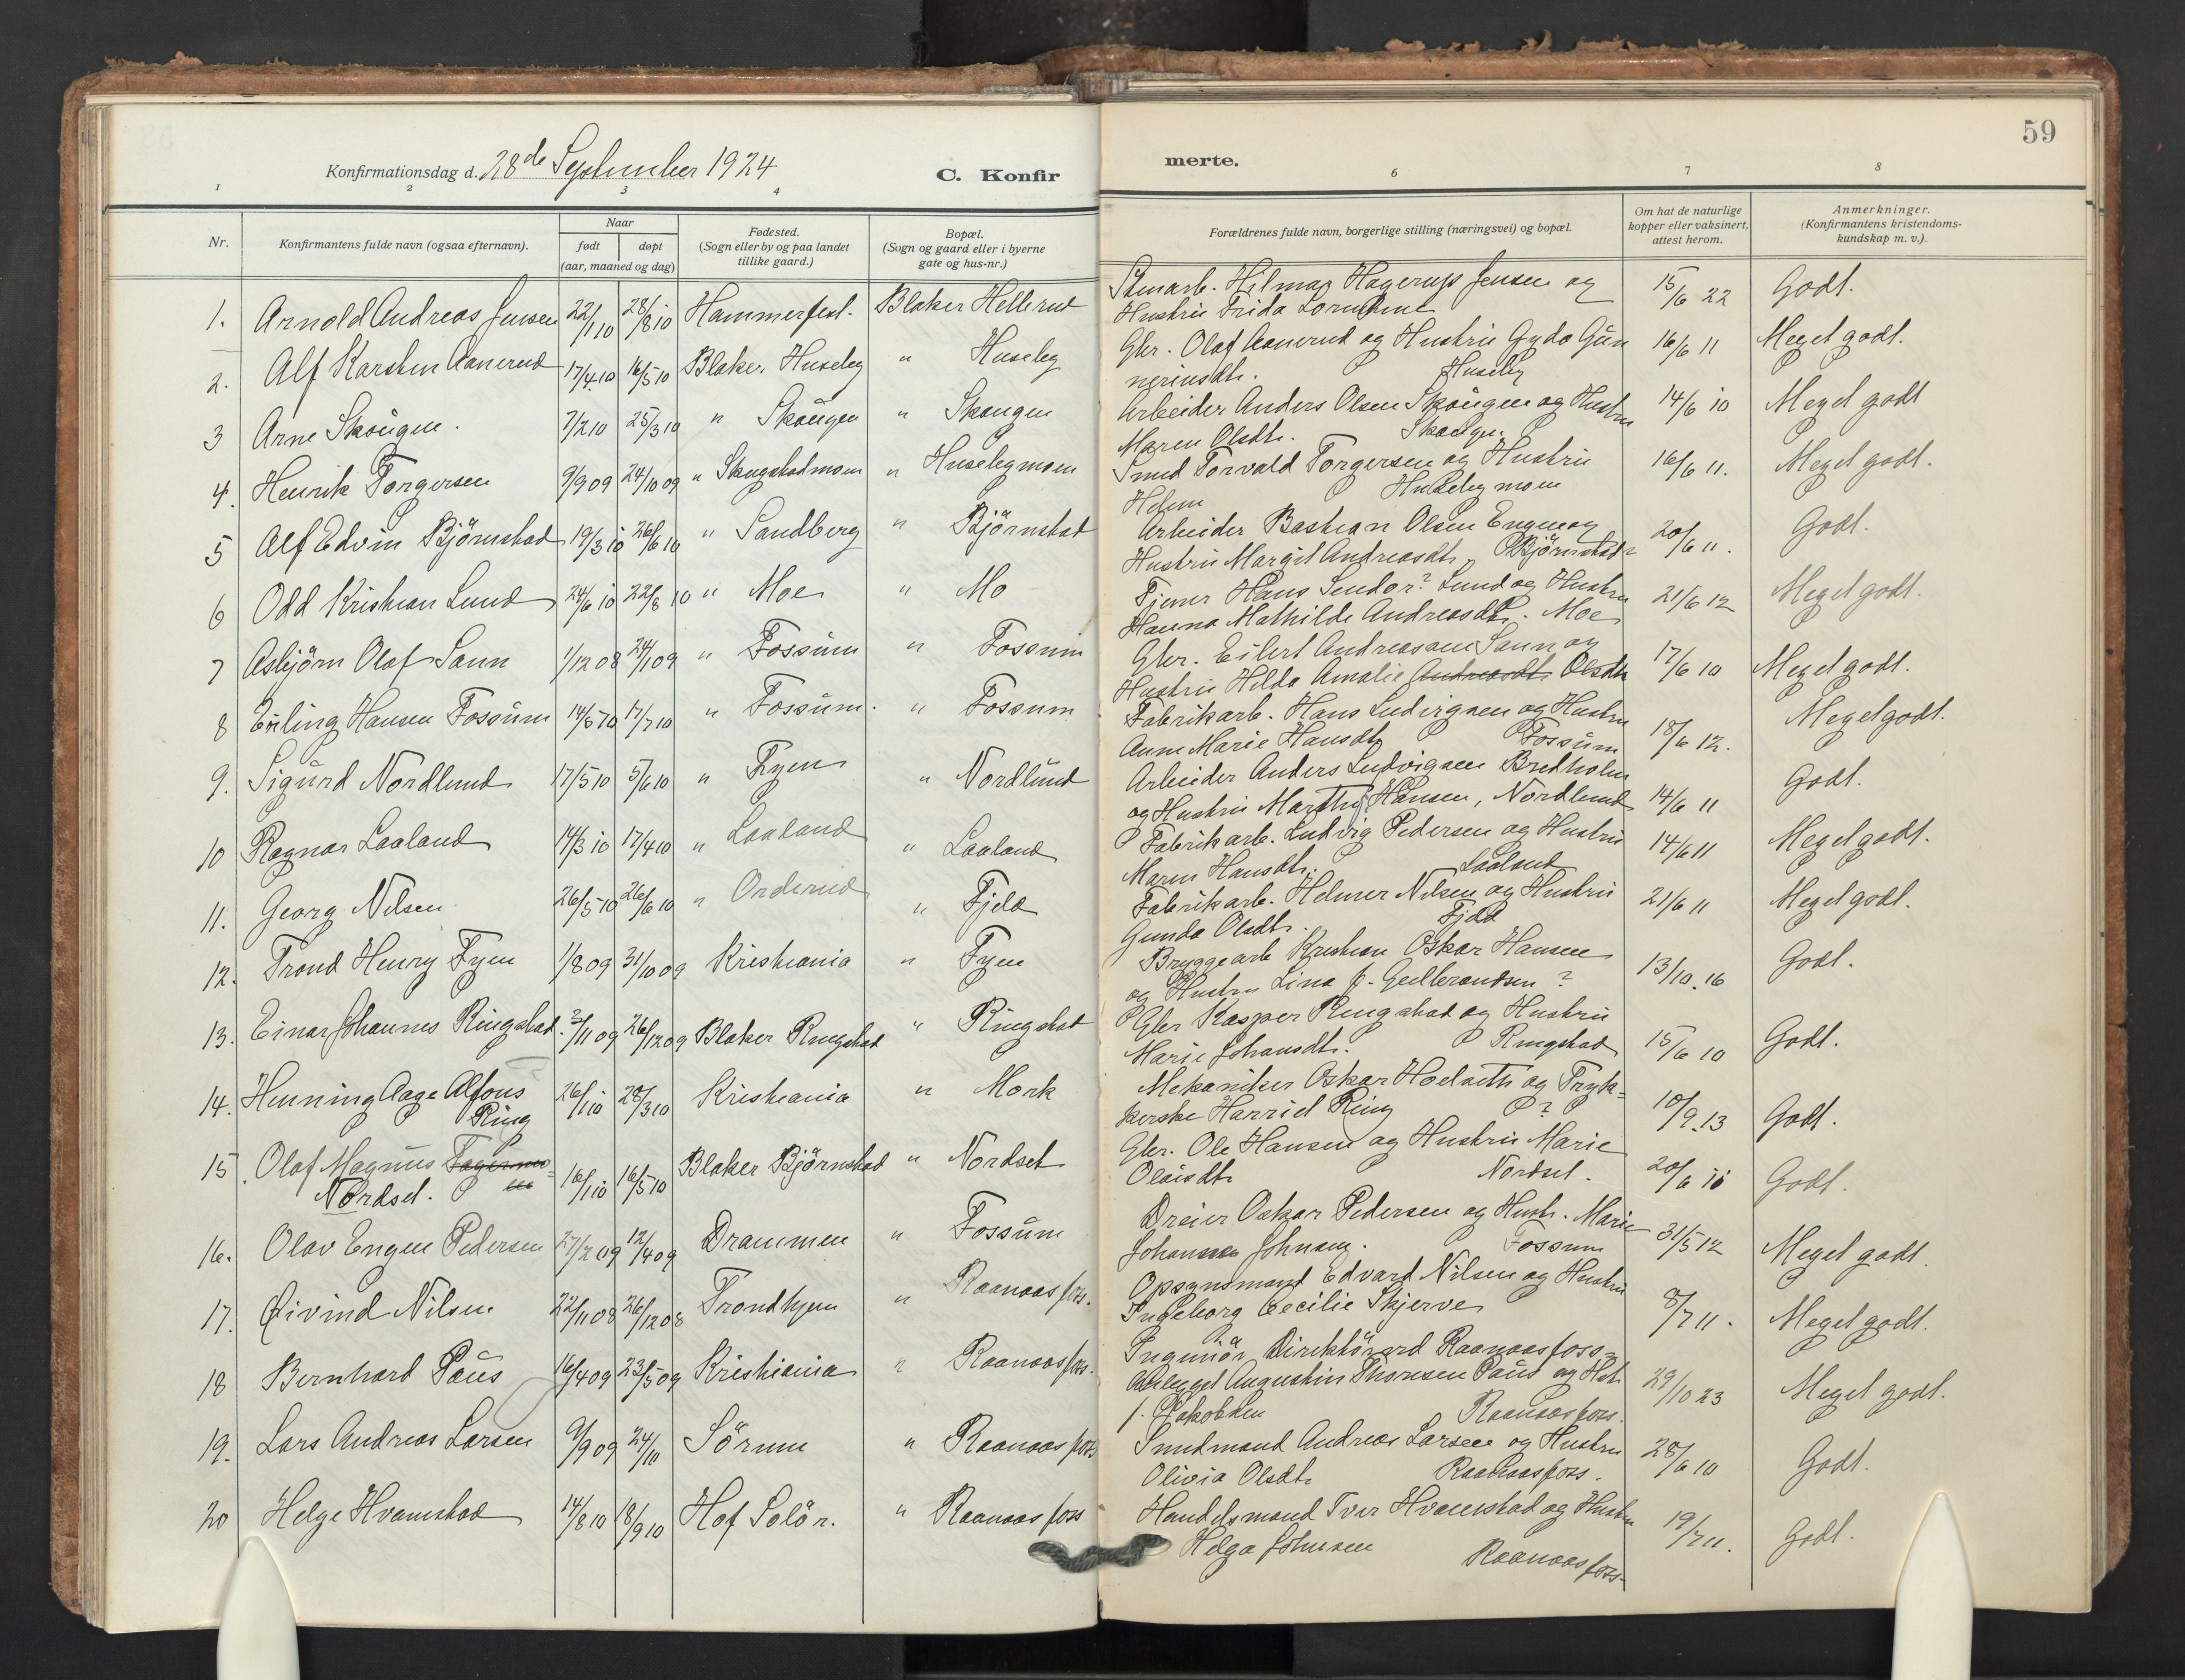 59
Konfirmationsdag d. 28de September 1924
C. Konfir
merte.
1 2 3 4 6 7 8
Nr.
Konfirmantens fulde navn (ogsaa efternavn).
Naar
født
døpt
(aar, maaned og dag)
Fødested.
(Sogn eller by og paa landet
tillike gaard.)
Bopæl.
(Sogn og gaard eller i byerne
gate og hus-nr.)
Forældrenes fulde navn, borgerlige stilling (næringsvei) og bopæl.
Om hat de naturlige
kopper eller vaksinert,
attest herom.
Anmerkninger.
(Konfirmantens kristendoms-
kundskap m. v.).
1. Arnold Andreas Jensen 22/1 10 28/8 10 Hammerfest. Blaker Hellerud
Stenarb. Hilmar Hagerup Jensen og
Hustru Frida
15/6 22 Godt.
2. Alf Karsten Aanerud 17/4 10 16/5 10 Blaker. Huseby " Huseby
Gbr. Olaf Aanerud og Hustru Gyda Gun
neriusdtr. Huseby
16/6 11 Meget godt.
3 Arne Skougen. 7/2 10 25/3 10 " Skougen " Skougen
Arbeider Anders Olsen Skougen og Hustru
Maren Olsdtr. Skougen.
14/6 10 Meget godt
4. Henrik Torgersen 9/9 09 24/10 09 " Skugstadmoen " Husebymoen
Smed Torvald Torgersen og Hustru
Helene Husebymoen
16/6 11. Meget godt.
5 Alf Edvin Björnstad 19/3 10 26/6 10 " Sandberg " Björnstad
Arbeider Bastian Olsen Engen og
Hustru Margit Andreasdtr. Björnstad
20/6 11. Godt.
6 Odd Kristian Lund 24/6 10 22/8 10 " Moe " Mo
Tjener Hans ? Lund og Hustru
Hanna Mathilde Andreasdtr. Moe
21/6 12 Meget godt.
7 Asbjörn Olaf Sann 1/12 08 24/1 09 " Fossum " Fossum
Gbr. Eilert Andreassen Sann og
Hustru Hilda Amalie Andreasdtr. Olsdtr
17/6 10 Meget godt.
8 Erling Hansen Fossum 14/5 10 17/7 10 " Fossum. " Fossum
Fabrikarb. Hans Ludvigsen og Hustru
Anne Marie Hansdtr Fossum
18/6 12. Meget godt.
9. Sigurd Nordlund 17/5 10 5/6 10 " Fyen " Nordlund
Arbeider Anders Ludvigsen Bredholm
og Hustru Marthy Hansen, Nordlund
14/6 11 Godt.
10 Ragnar Laaland 14/3 10 17/4 10 " Laaland " Laaland
Fabrikarb. Ludvig Pedersen og Hustru
Maren Hansdtr. Laaland
14/6 11 Meget godt.
11. Georg Nilsen 26/5 10 26/6 10 " Orderud " Fjeld
Fabrikarb. Helmer Nilsen og Hustru
Gunda Olsdtr. Fjeld
21/6 11 Meget godt.
12. Trond Henry Fyen 1/8 09 31/10 09 Kristiania " Fyen
Bryggearb Kristian Oskar Hansen
og Hustru Lina f. Gulbrandsen ?
13/10. 16 Godt.
13. Einar Johannes Ringstad. 2/11 09 26/12 09 Blaker Ringstad " Ringstad
Gbr Kasper Ringstad og Hustru
Marie Johansdtr. Ringstad
15/6 10 Godt.
14. Henning Aage Alfons 26/1 10 28/3 10 Kristiania " Mork
Ring
Mekaniker Oskar Hoelseth og Tryk=
kerske Harriet Ring ?
10/9. 13 Godt.
15. Olaf Magnus 16/1 10 16/5 10 Blaker Björnstad " Nordset
Nordset.
Gbr. Ole Hansen og Hustru Marie
Olaisdtr Nordset.
20/6 10 Godt.
16. Olav Engen Pedersen 27/2 09 12/4 09 Drammen " Fossum
Dreier Oskar Pedersen og Hustr. Marie
Johansen. Fossum
31/5 12 Meget godt.
17. Øivind Nilsen 22/11 08 26/12 08 Trondhjem " Raanaasfoss.
Opsynsmand Edvard Nilsen og Hustru
Ingeborg Cecilie Skjerve
8/7 11. Meget godt.
18 Bernhard Paus 16/4 09 23/5 09 Kristiania " Raanaasfoss.
Ingeniör, Direktör ved Raanaasfoss=
Anlegget Augustin Thoresen Paus og Hst.
f. Jakobsen Raanaasfoss.
29/10 23 Meget godt.
19. Lars Andreas Larsen 9/9 09 24/10 Sörum " Raanaasfoss
Andreas Larsen og Hustru
Olivia Olsdtr Raanaasfoss.
28/6 10 Godt.
20 Helge Hvamstad 14/8 10 18/9 10 Hof Solör. " Raanaasfoss
Handelsmand Iver Hvamstad og Hustru
Helga Johnsen Raanaasfoss
19/7 11. Godt.